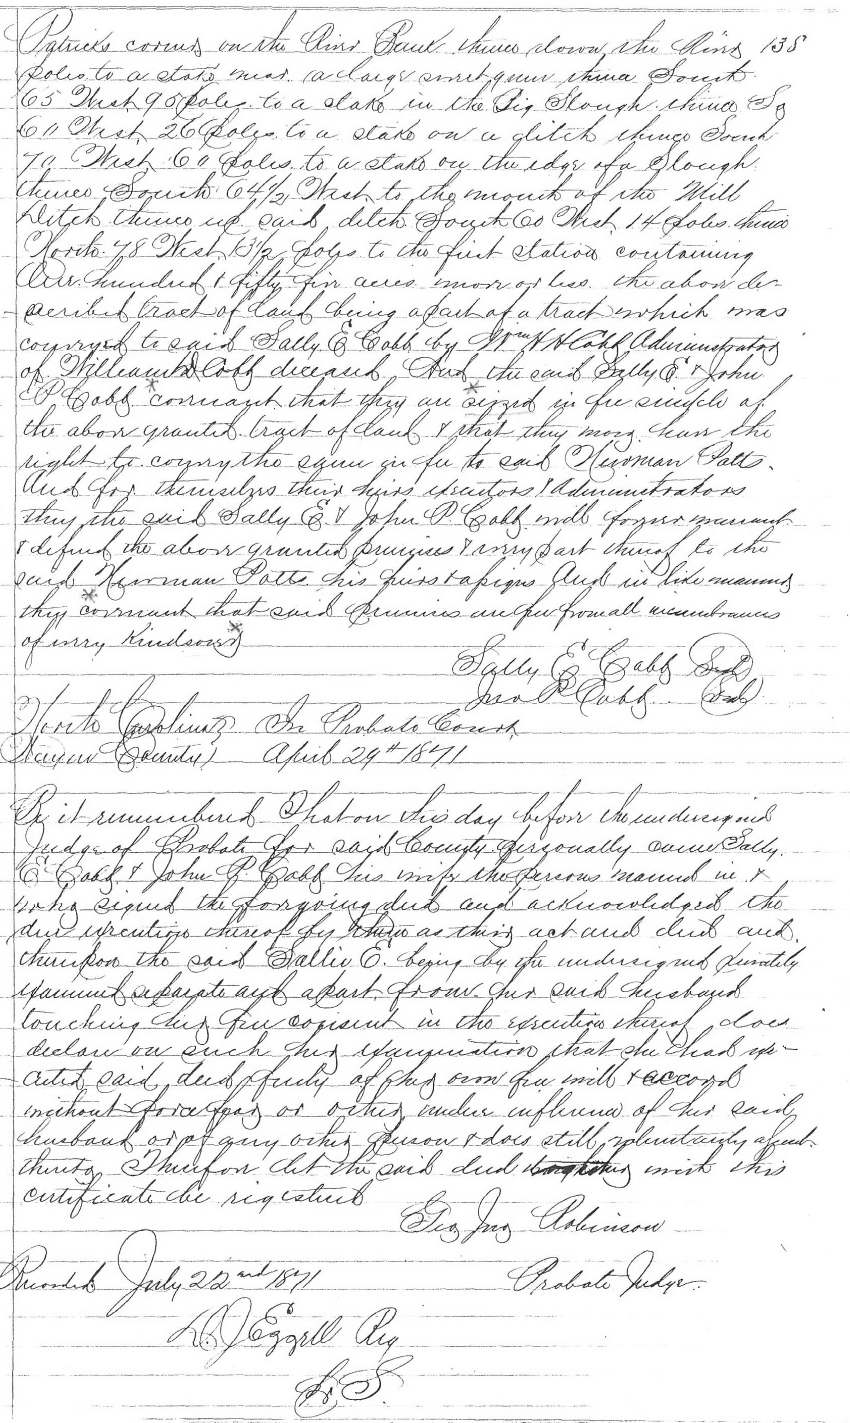 Patricks corner on the River Bank thence down the River 138
poles to a stake near a large sweet gum thence South
65 West 95 poles to a stake in the Big Slough thence So
60 West 26 poles to a stake on a ditch thence South
70 West 60 poles to a stake on the edge of a Slough
thence South 64 1/2 West to the mouth of the Mill
Ditch thence up said ditch South 60 West 14 poles thence
North 78 West 131/2 poles to the first station containing
hundred & fifty five acres more or less the above de-
scribed tract of land being a part of a tract which was
conveyed to said Sally E Cobb by Wm H H Cobb Administrator
of William D Cobb deceased And the said Sally E & John
P Cobb covenant that they are seized in fee simple of
the above granted tract of land & that they have the
right to convey the same in fee to said Newman Potts.
And for themselves their heirs executors & Administrators
they the said Sally E. & John P. Cobb will forever warrant
& defend the above granted premises & every part thereof to the
said Newman Potts his heirs & assigns And in like manner
they covenant that said premises are free from all incumbrances
of every Kindsover
Sally E Cobb Seal
Jno P Cobb Seal
North Carolina } In Probate Court
Wayne County } April 29th 1871
Be it remembered That on this day before the undersigned
Judge of Probate for said County personally came Sally
E Cobb & John P. Cobb his wife the persons named in &
who signed the foregoing deed and acknowledged the
due execution thereof by them as their act and deed and
thereupon the said Sallie E. being by the undersigned privately
examined separate and apart from her said husband
touching her free consent in the execution thereof does
declare on such her examination that she had exe-
cuted said deed freely of her own free will & accord
without force fear or other undue influence of her said
husband or of any other person & does still voluntarily assent
thereto Therefore let the said deed with this
certificate be registered
Geo Jno Robinson
Recorded July 22nd 1871 Probate Judge.
Ezzell Reg